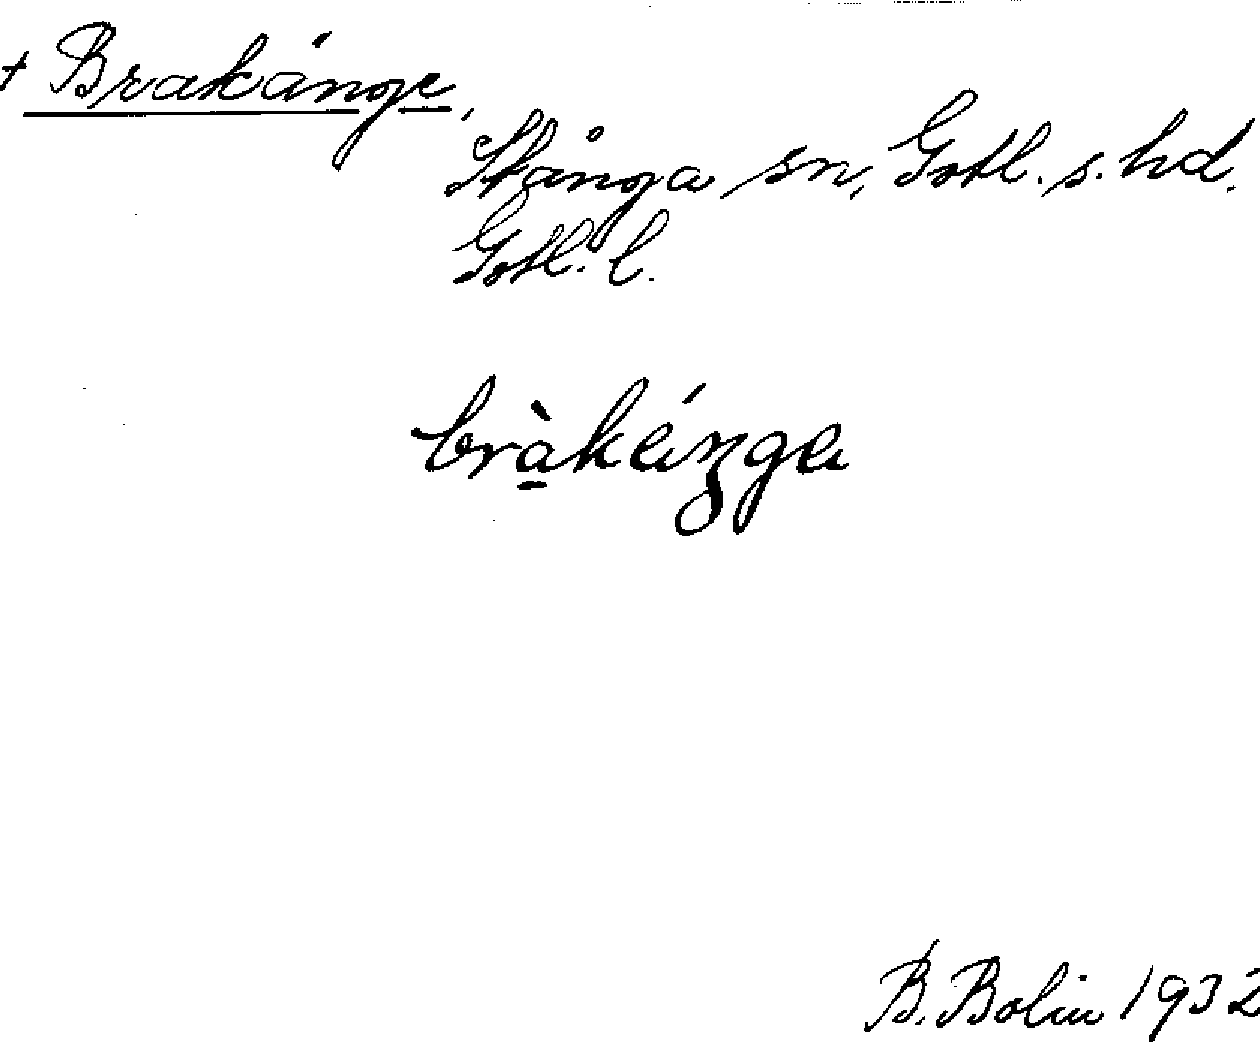 + Brakänge,
Stånga sn, Gotl. s. hd.
Gotl. l.
bràkéŋge
B. Bolin 1932